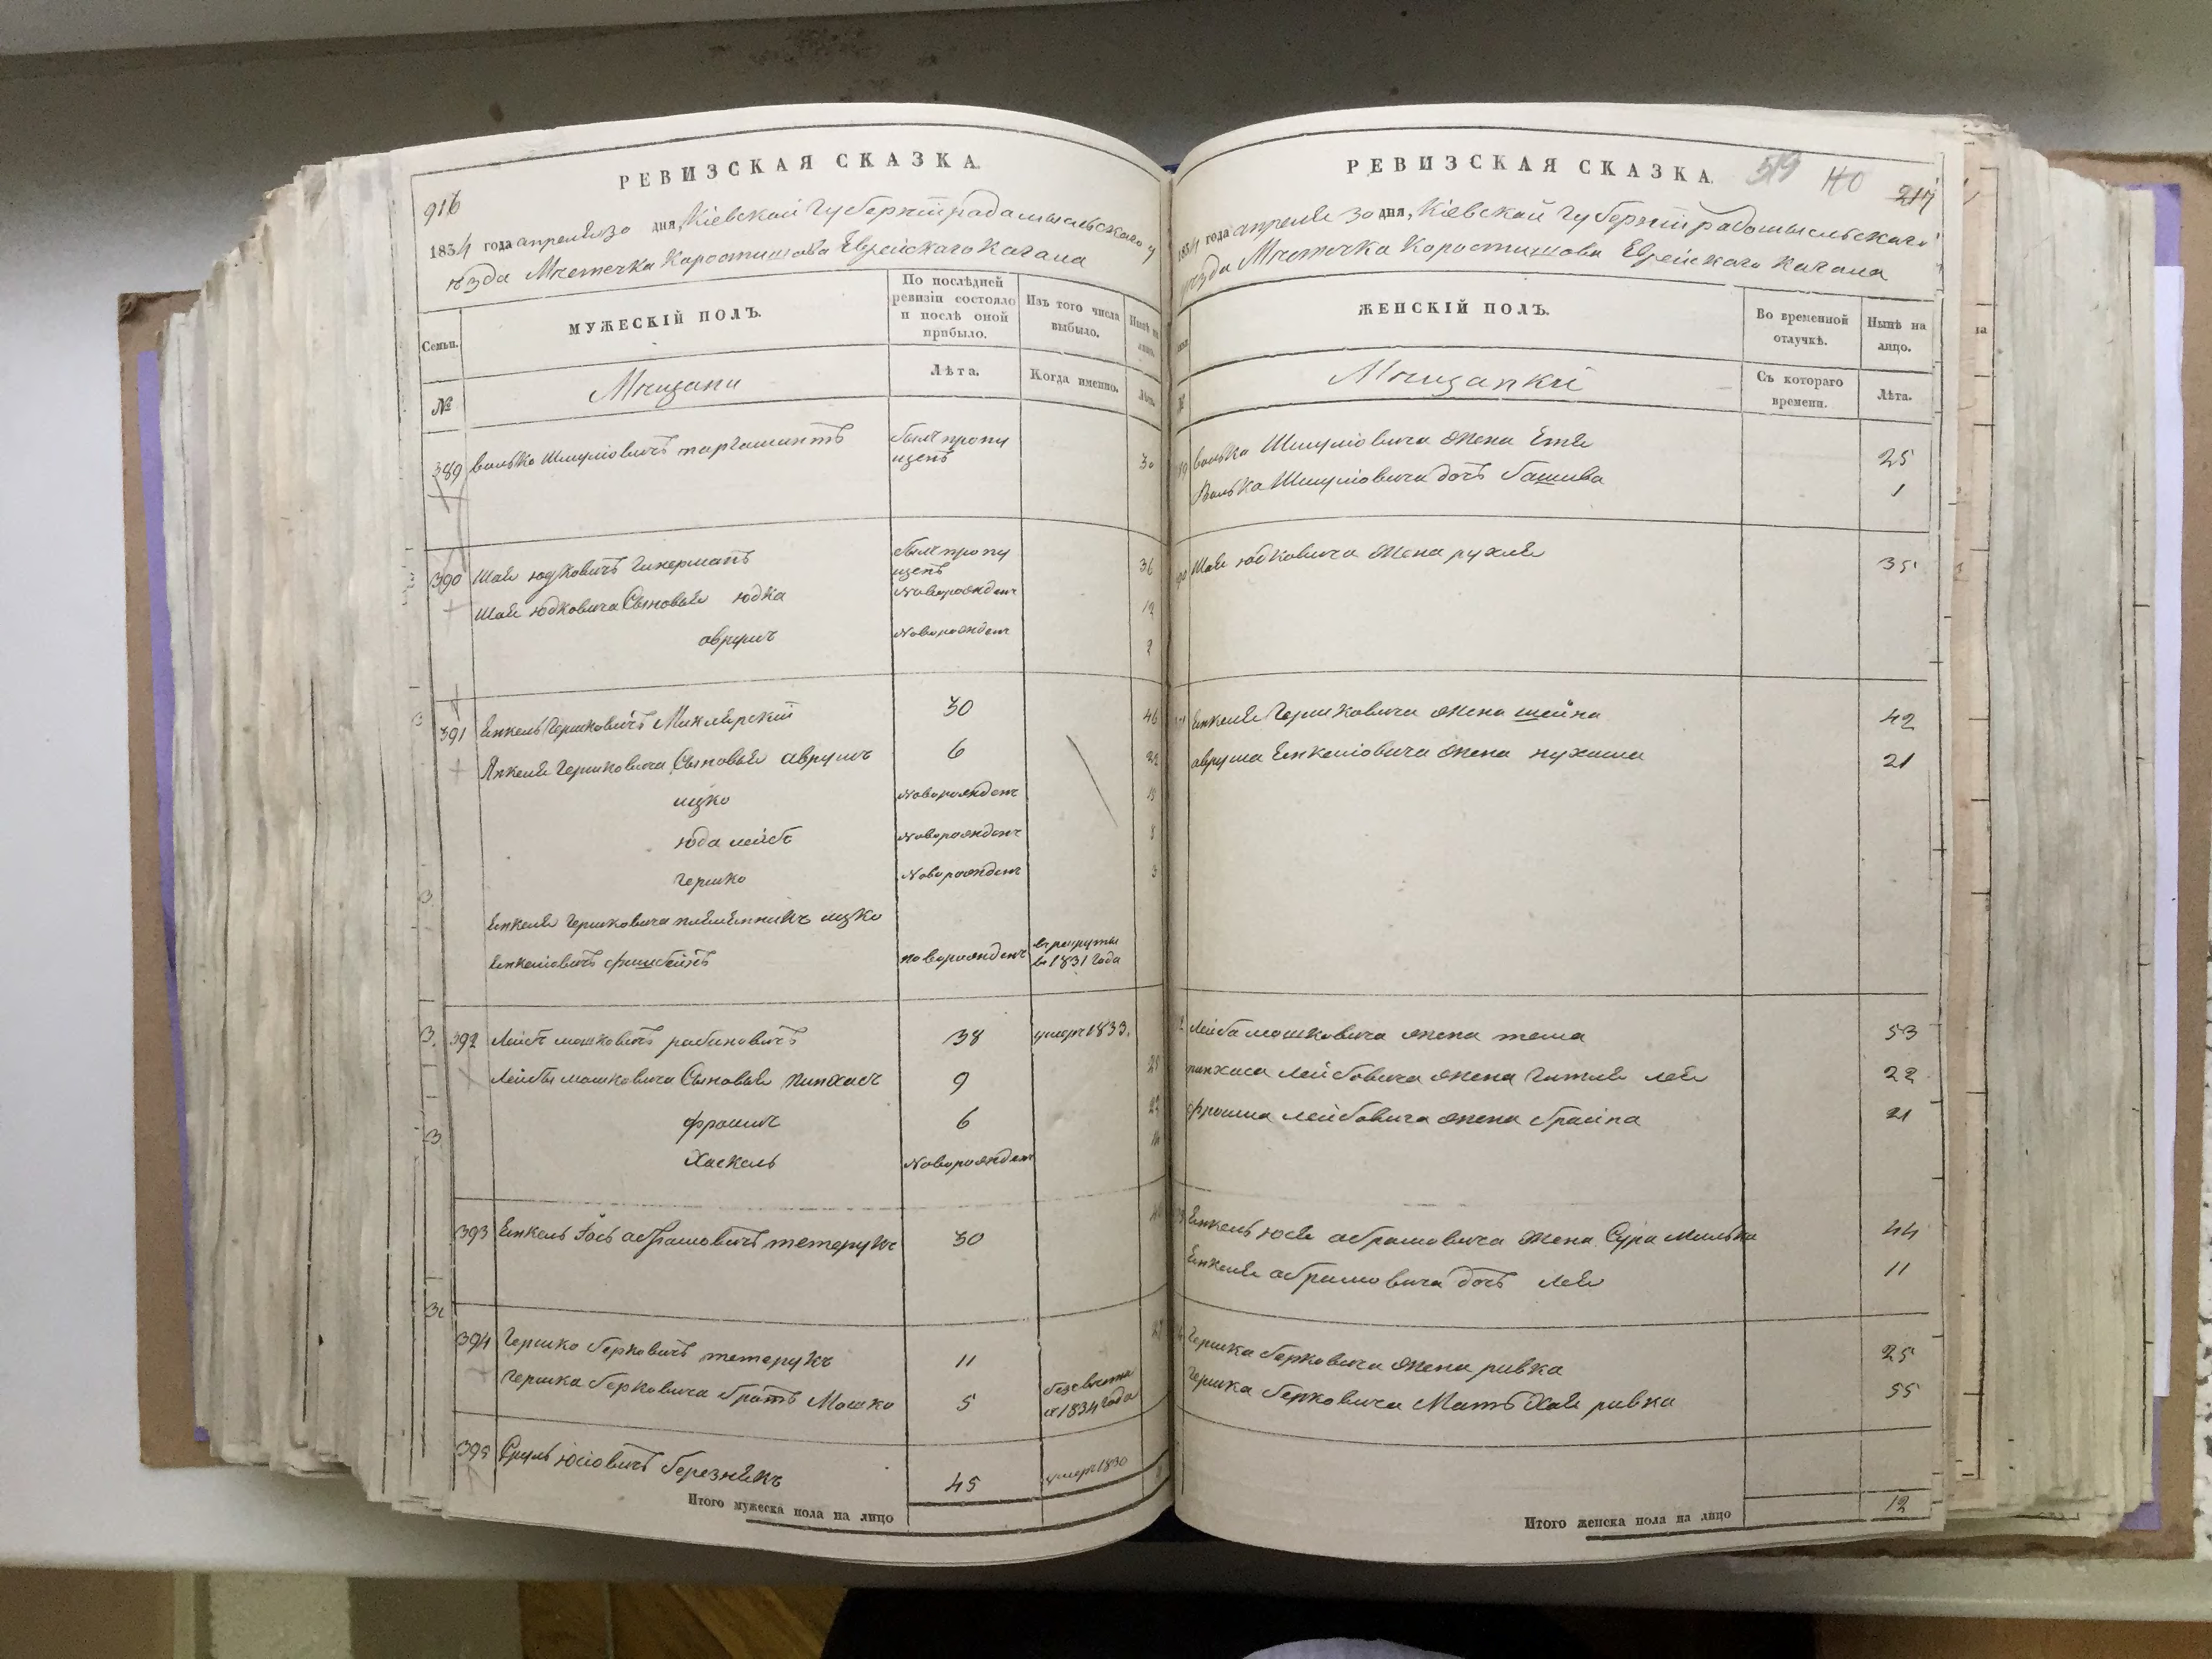 РЕВИЗСКАЯ СКАЗКА.
916
1834 года апреля 30 дня, Кіевской Губерніи радомысльского у
ѣзда Мѣстечка Коростишова Еврейскаго Кагала
Семьи.
МУЖЕСКІЙ ПОЛЪ.
По послѣдней ревизіи состояло и послѣ оной прибыло.
Изъ того числа выбыло.
№
Мѣщани
Лѣта.
Когда именно.
Лѣта.
389 волько Шмуліовичъ был пропу
щенъ 30
390 Шая юдковичъ был пропу
щенъ 36
Шаи юдковича Сыновья юдка Новорожден 12
аврумъ Новорожден 2
391 Янкель Гершковичъ 30 46
Янкеля Гершковича Сыновья аврумъ 6 22
ицко Новорожден
юда лейбъ Новорожден 8
гершко Новорожден 3
Янкеля Гершковича племянникъ ицко
Янкеліовичъ новорожден в рекруты
в 1831 года
392 Лейбъ мошковичъ рабиновичъ 38 умер 1833.
Лейбы мошковича Сыновья пинхасъ 9
фроимъ 6
Хаскель Новорожден
393 Янкель Іось абрамовичъ тетерукъ 30
394 Гершко берковичъ тетерукъ 11
Гершка берковича братъ Мошко 5 безвестно
с 1834 года
395 Сруль юсіовичъ березнякъ 45 умер 1830
Итого мужеска пола на лицо
РЕВИЗСКАЯ СКАЗКА.
519 110 217
1834 года апреля 30 дня, Кіевской Губерніи радомысльскаго
уѣзда Мѣстечка Коростишова Еврейскаго Кагала
ЖЕНСКІЙ ПОЛЪ.
Во временной отлучкѣ.
Нынѣ на лицо.
№
Мѣщанки
Съ котораго времени.
Лѣта.
волька Шмуліовича жена Етя 25
Волька Шмуліовича дочь башива 1
Шаи юдковича жена рухля 35
Янкеля Гершковича жена шейна 42
аврума Янкеліовича жена нухима 21
Лейба мошковича жена тема 53
пинхаса Лейбовича жена гитля лея 22
фроима лейбовича жена браина 21
Янкель юся абрамовича жена Сура Милька 44
Янкеля абрамовича дочь лея 11
гершка берковича жена ривка 25
гершка берковича Мать Хая ривка 55
Итого женска пола на лицо 12